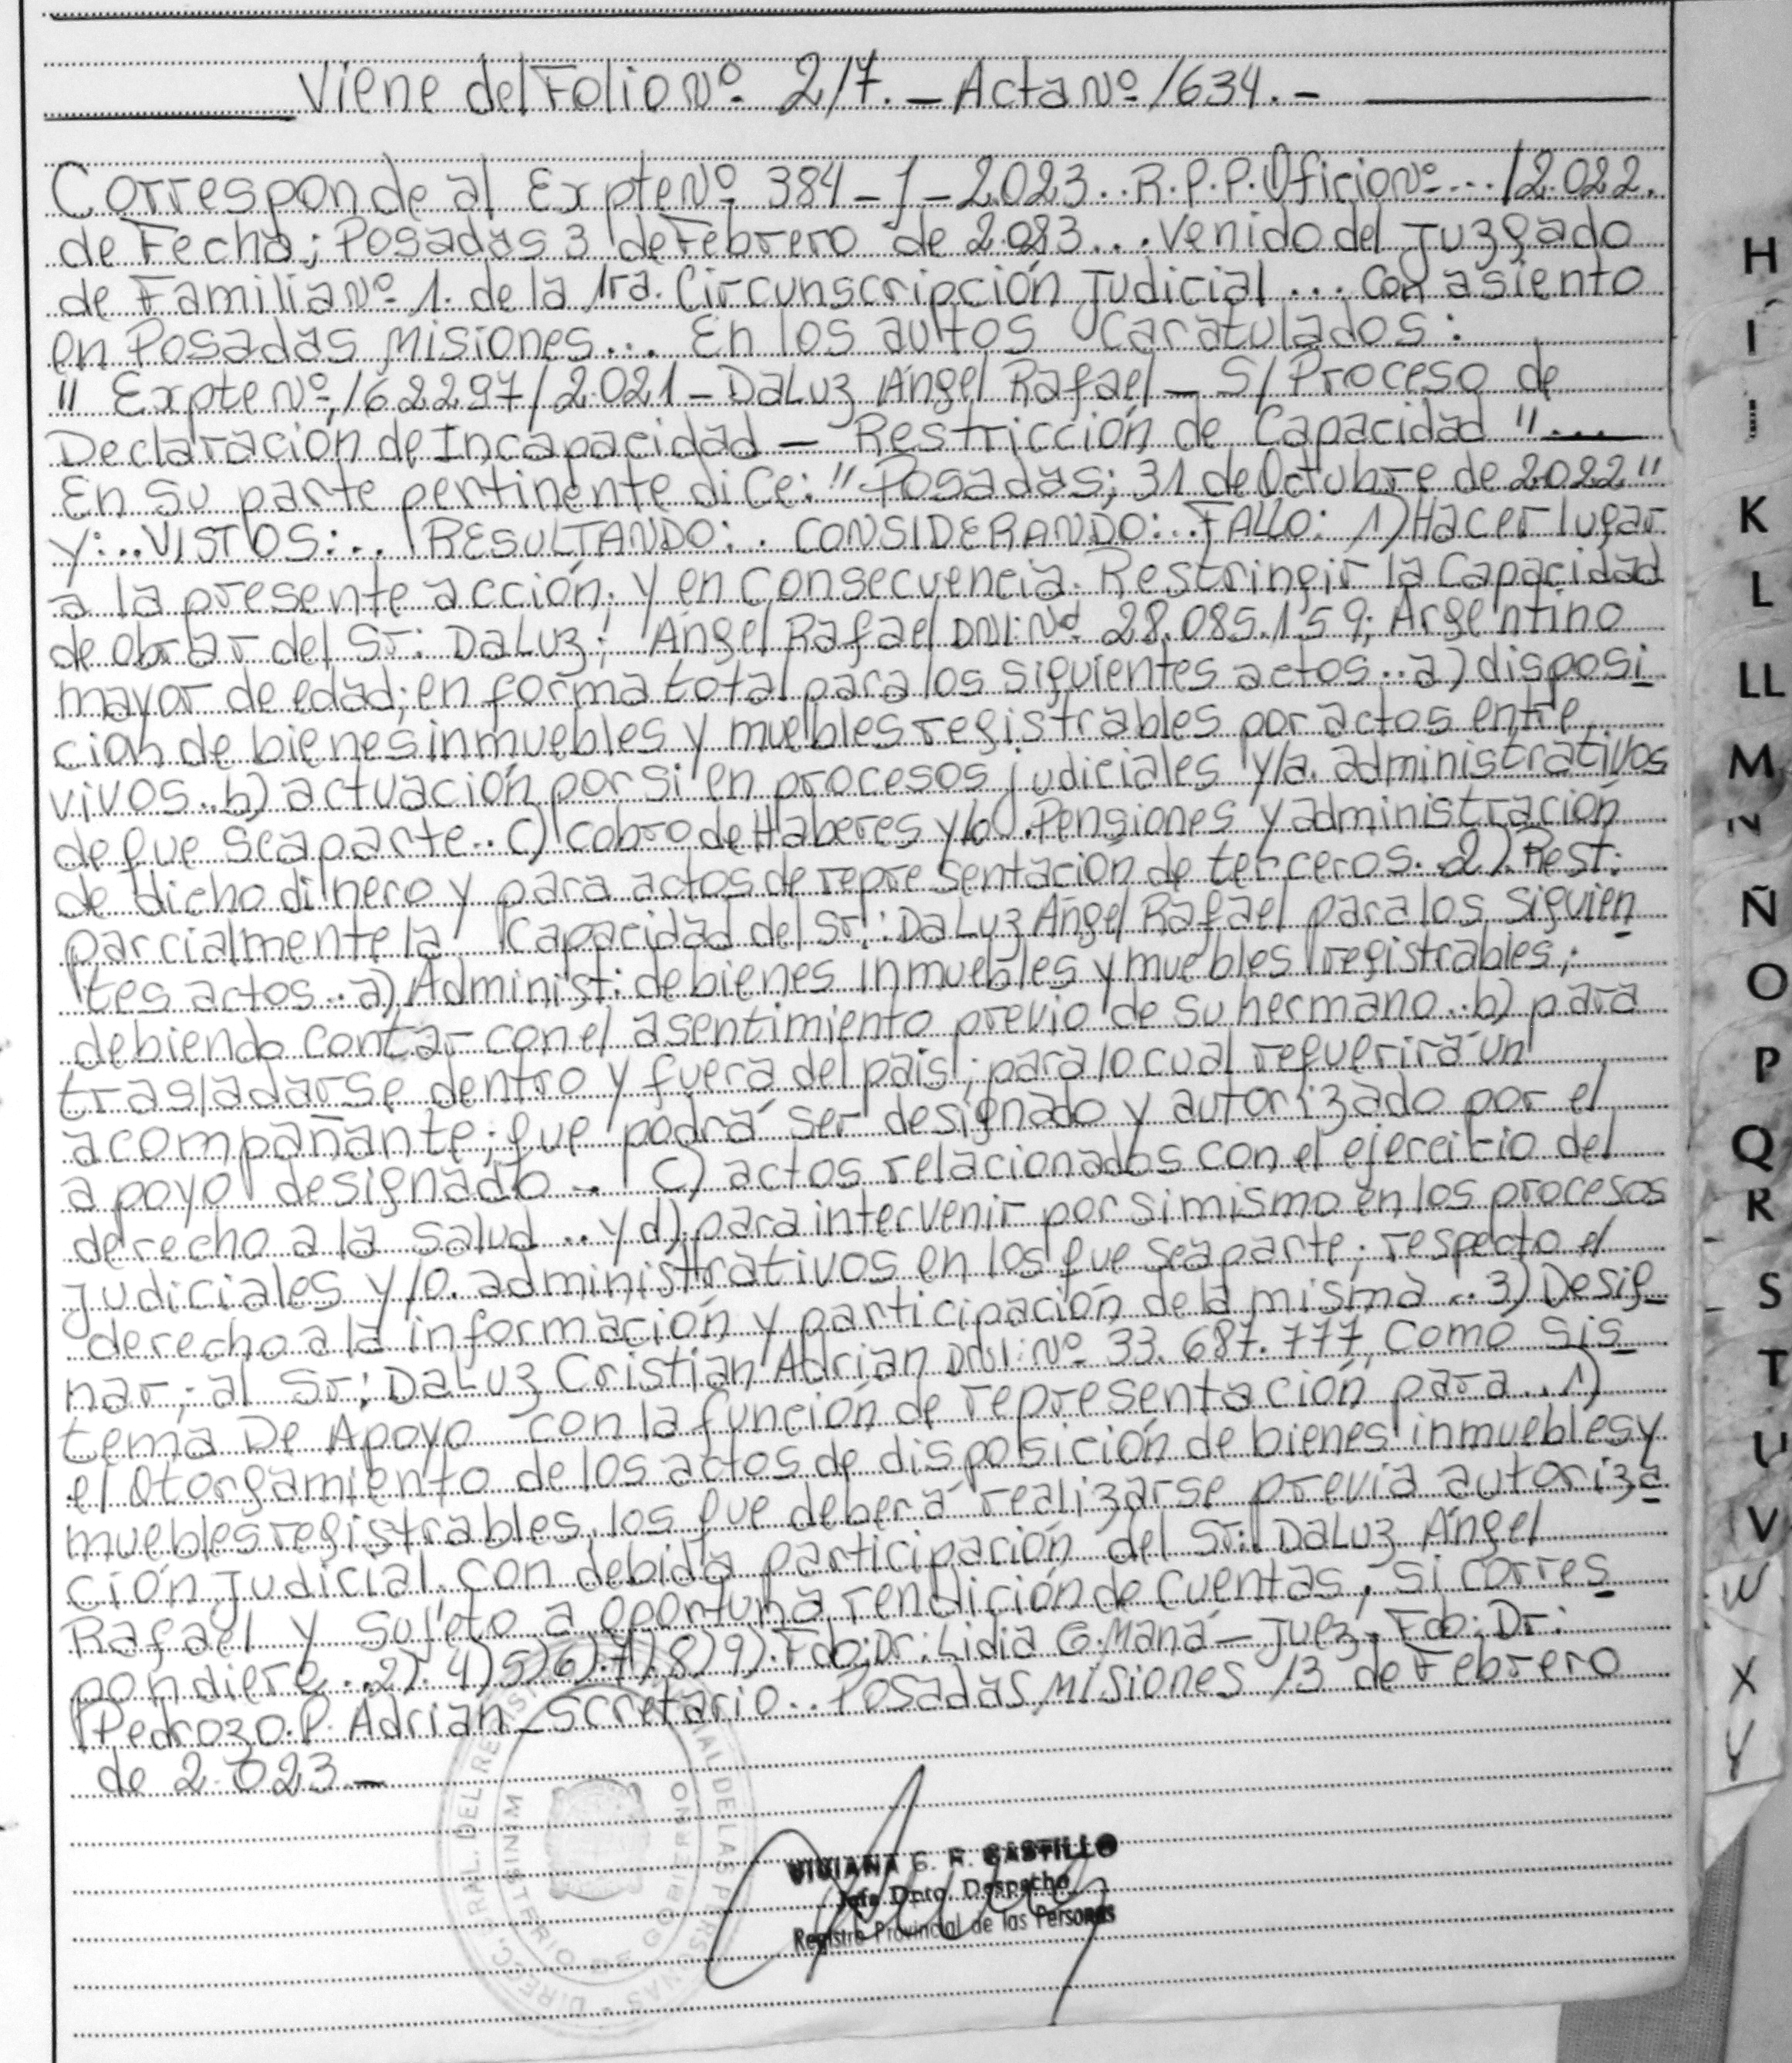 Viene del Folio Nº 217. - Acta Nº 1634. -
Corresponde al Expte Nº 384-J-2023.. R.P.P. Oficio Nº --- /2.022.
de Fecha; Posadas 3 de Febrero de 2.023... Venido del Juzgado
de Familia Nº 1. de la 1ra. Circunscripción Judicial... Con asiento
en Posadas Misiones... En los autos Caratulados:
" Expte Nº 162297/2.021 - DaLuz Ángel Rafael - S/ Proceso de
Declaración de Incapacidad - Restricción de Capacidad "...
En su parte pertinente dice: "Posadas; 31 de Octubre de 2022"
Y:.. VISTOS:.. RESULTANDO:. CONSIDERANDO:.. FALLO: 1) Hacer lugar
a la presente acción; y en consecuencia. Restringir la Capacidad
de obrar del Sr: DaLuz; Ángel Rafael DNI: Nº 28.085.159; Argentino
mayor de edad; en forma total para los siguientes actos.. a) disposi
ción de bienes inmuebles y muebles registrables por actos entre
vivos.. b) actuación por si en procesos judiciales y/a. administrativos
de que sea parte.. c) cobro de Haberes y/o. Pensiones y administración
de dicho dinero y para actos de representación de terceros.. 2) Rest:
parcialmente la Capacidad del Sr: DaLuz Ángel Rafael para los siguien
tes actos.. a) Administ: de bienes inmuebles y muebles registrables;
debiendo contar con el asentimiento previo de su hermano.. b) para
trasladarse dentro y fuera del país; para lo cual requerirá un
acompañante; que podrá ser designado y autorizado por el
apoyo designado.. c) actos relacionados con el ejercitio del
derecho a la salud.. y d) para intervenir por si mismo en los procesos
judiciales y/o. administrativos en los que sea parte; respecto el
derecho a la información y participación de la misma.. 3) Desig-
nar; al Sr; DaLuz Cristian Adrian DNI: Nº 33.687.777, Como Sis
tema De Apoyo con la función de representación para.. 1)
el otorgamiento de los actos de disposición de bienes inmuebles y
muebles registrables, los que deberá realizarse previa autoriza
ción Judicial. con debida participación del Sr: DaLuz Ángel
Rafael y sujeto a oportuna rendición de cuentas; si corres
pondiere.. 2). 4) 5) 6). 7). 8) 9). Fdo: Dr: Lidia G. Maná - Juez, Fdo: Dr:
Pedrozo. P. Adrián - Scretario.. Posadas, Misiones 13 de Febrero
de 2.023 -
VIVIANA G. F. CASTILLO
Jefe Dpto. Despacho
Registro Provincial de las Personas
H
I
K
L
LL
M
N
Ñ
O
P
Q
R
S
T
U
V
W
X
Y